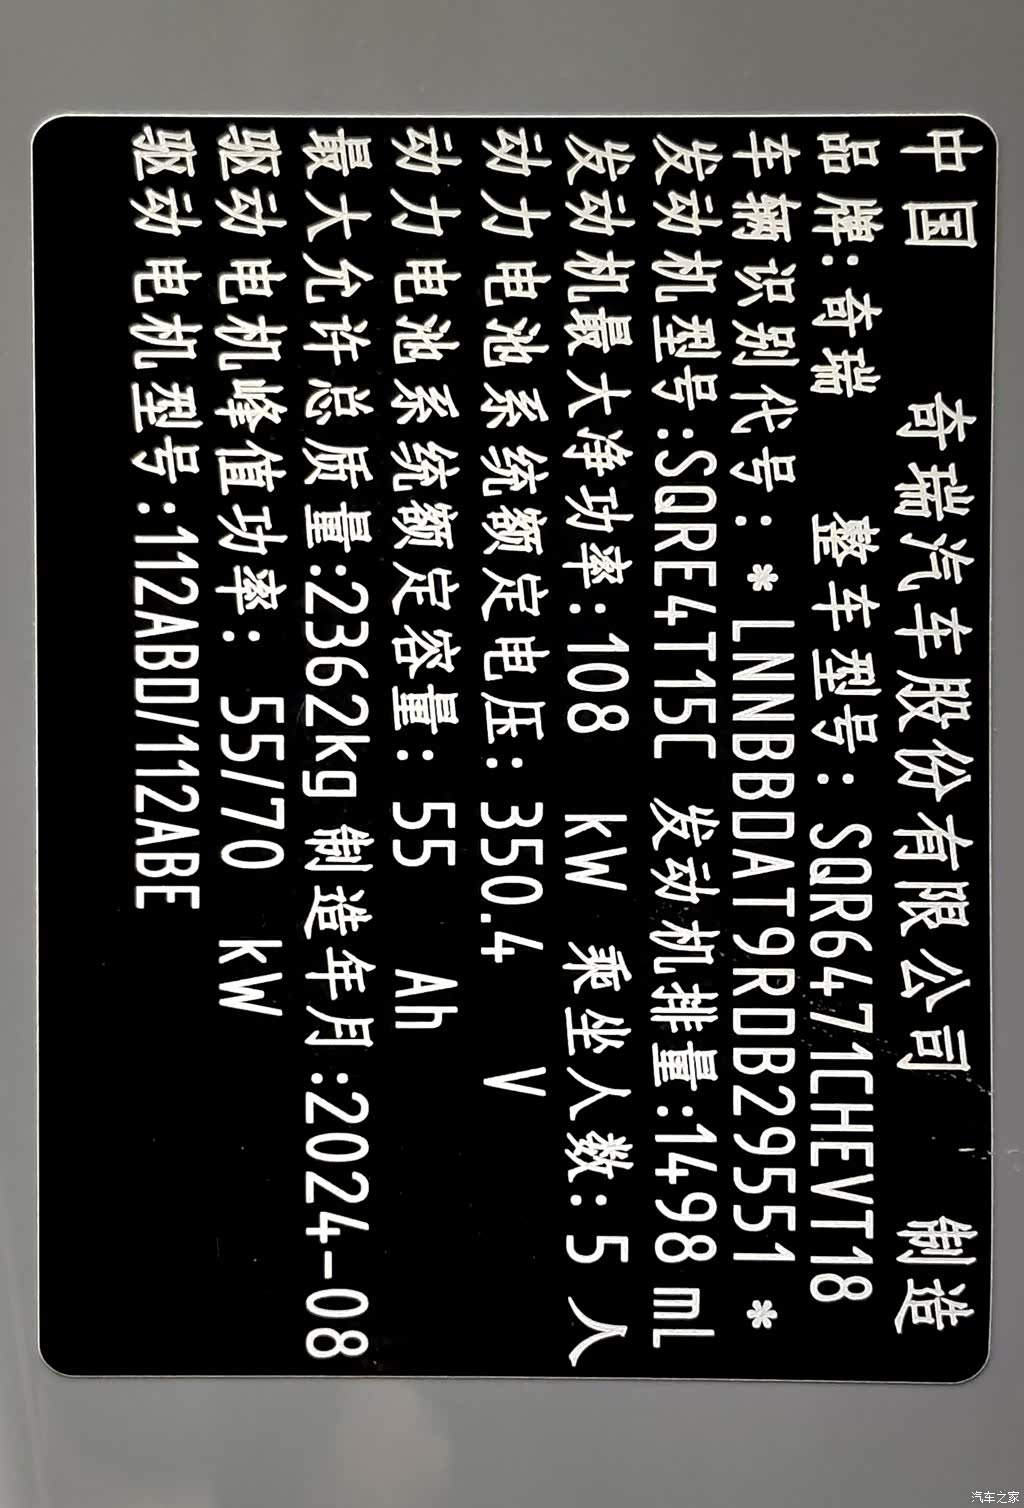 中国 奇瑞汽车股份有限公司 制造
品牌:奇瑞 整车型号:SQR6471CHEVT18
车辆识别代号:*LNNBBDAT9RDB29551*
发动机型号:SQRE4T15C 发动机排量:1498 mL
发动机最大净功率:108 kW 乘坐人数:5人
动力电池系统额定电压:350.4 V
动力电池系统额定容量:55 Ah
最大允许总质量:2362kg 制造年月:2024-08
驱动电机峰值功率: 55/70 kW
驱动电机型号:112ABD/112ABE
汽车之家